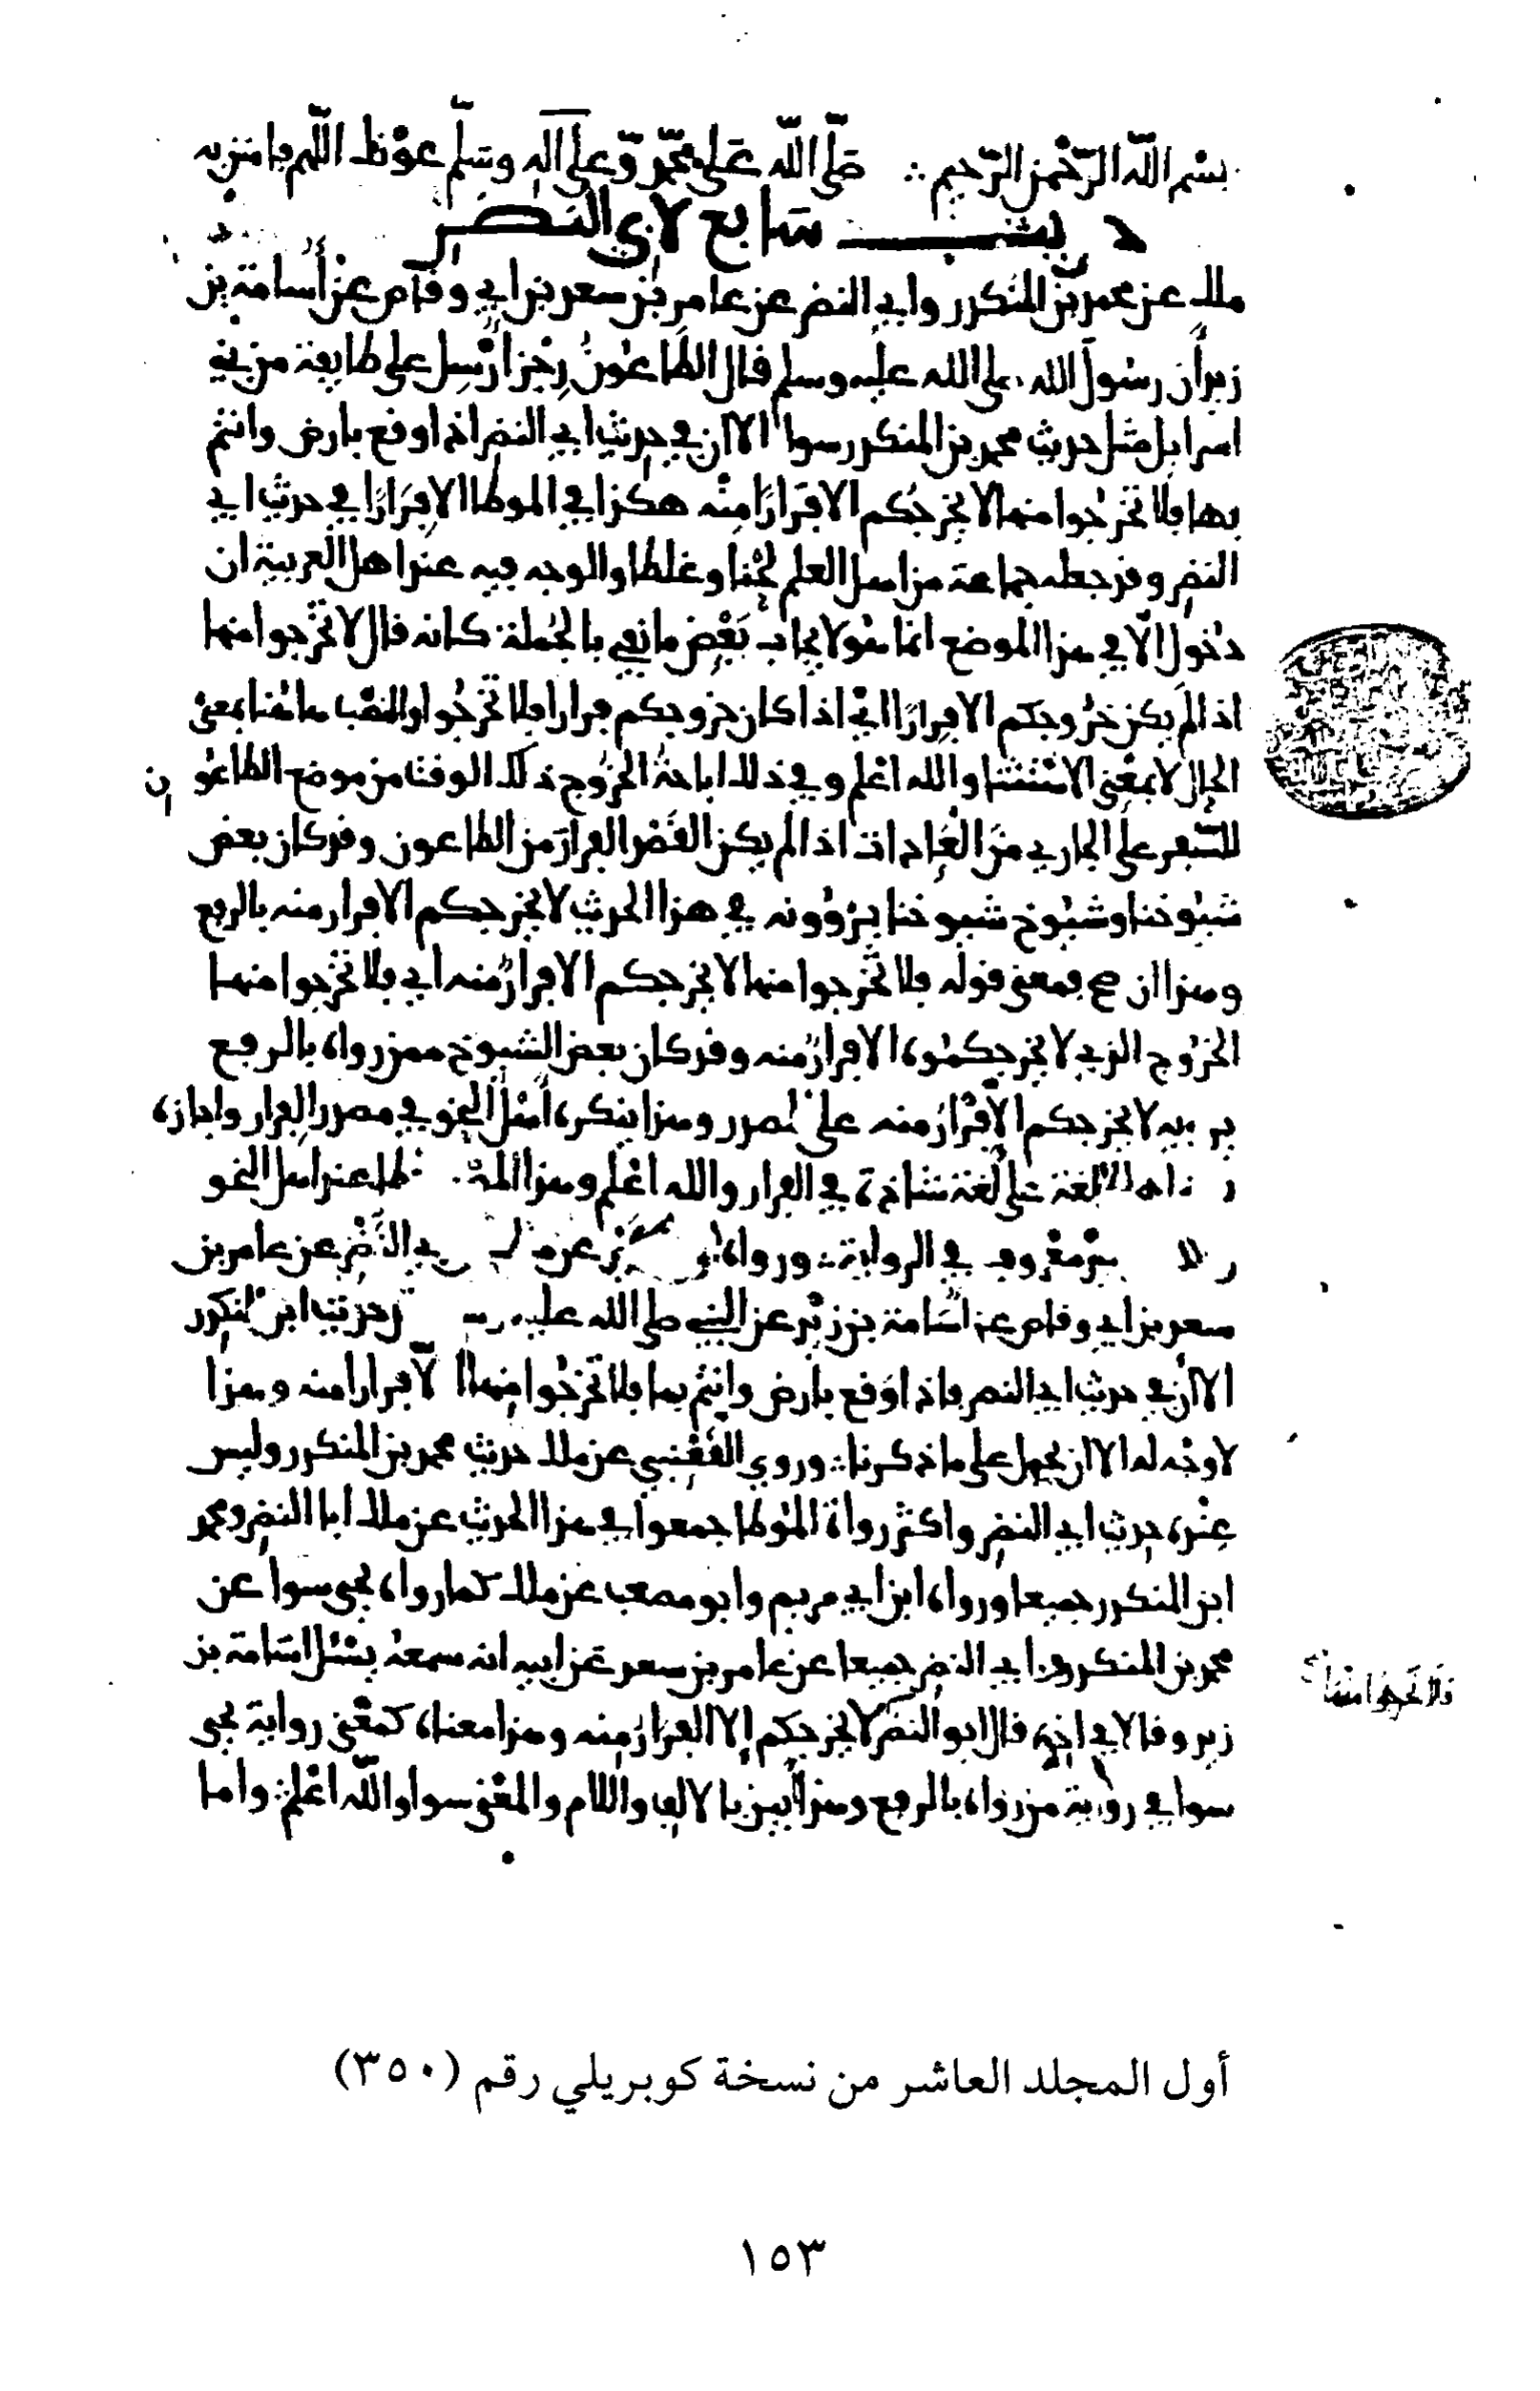 بسم الله الرحمن الرحيم صلى الله على محمد وعلى آله وسلم عونك اللهم
حديث سابع لابي النضر
ملك عن محمد بن المنكدر وابي النضر عن عامر بن سعد بن ابي وقاص عن أسامة بن
زيد أن رسول الله صلى الله عليه وسلم قال الطاعون رجز ارسل على طايفة من بني
اسرايل مثل حديث محمد بن المنكدر سوا الا ان في حديث ابي النضر اذا وقع بارض وانتم
بها فلا تخرجوا منها لا يخرجكم الا فرارا منه هكذا في الموطا الا فرارا في حديث ابي
النضر وقد جعله جماعة من اهل العلم لحنا وغلطا والوجه فيه عند اهل العربية ان
دخول الا في هذا الموضع انما هو لايجاب بعض ما نفي بالجملة كانه قال لا تخرجوا منها
اذا لم يكن خروجكم الا فرارا اي اذا كان خروجكم فرارا فلا تخرجوا والنصب هاهنا بمعنى
الحال لا بمعنى الاستثنا والله اعلم وفي ذلك اباحة الخروج ذلك الوقت من موضع الطاعون
للسفر على الجاري من العادات اذا لم يكن القصد الفرار من الطاعون وقد كان بعض
شيوخنا وشيوخ شيوخنا يروونه في هذا الحديث لا يخرجكم الا فرار منه بالرفع
وهذا ان صح فمعنى قوله فلا تخرجوا منها لا يخرجكم الا فرار منه اي فلا تخرجوا منها
الخروج الذي لا يخرجكموه الا فرار منه وقد كان بعض الشيوخ ممن رواه بالرفع
يرويه لا يخرجكم الإفرار منه على المصدر وهذا ينكره أهل النحو في مصدر الفرار واجازه
لغة على لغة شاذة في الفرار والله اعلم وهذا عند اهل النحو
معروف في الرواية ورواه عن النضر عن عامر بن
سعد بن ابي وقاص عن أسامة بن زيد عن النبي صلى الله عليه وحديث ابن المنكدر
الا ان في حديث ابي النضر فاذا وقع بارض وانتم بها فلا تخرجوا منها الا فرارا منه وهذا
لا وجه له الا ان يحمل على ما ذكرنا وروى القعنبي عن ملك حديث محمد بن المنكدر وليس
عنده حديث ابي النضر واكثر رواة الموطا جمعوا في هذا الحديث عن ملك ابا النضر ومحمد
ابن المنكدر جميعا ورواه ابن ابي مريم وابو مصعب عن ملك كما رواه يحيى سوا عن
محمد بن المنكدر وابي النضر جميعا عن عامر بن سعد عن ابيه انه سمعه يسئل اسامة بن
زيد وقالا في اخره قال ابو النضر لا يخرجكم الا الفرار منه وهذا معناه كمعنى رواية يحيى
سوا في رواية من رواه بالرفع وهذا بين بالالف واللام والمعنى سوا والله اعلم واما
فلا تخرجوا منها
أول المجلد العاشر من نسخة كوبريلي رقم (٣٥٠)
١٥٣